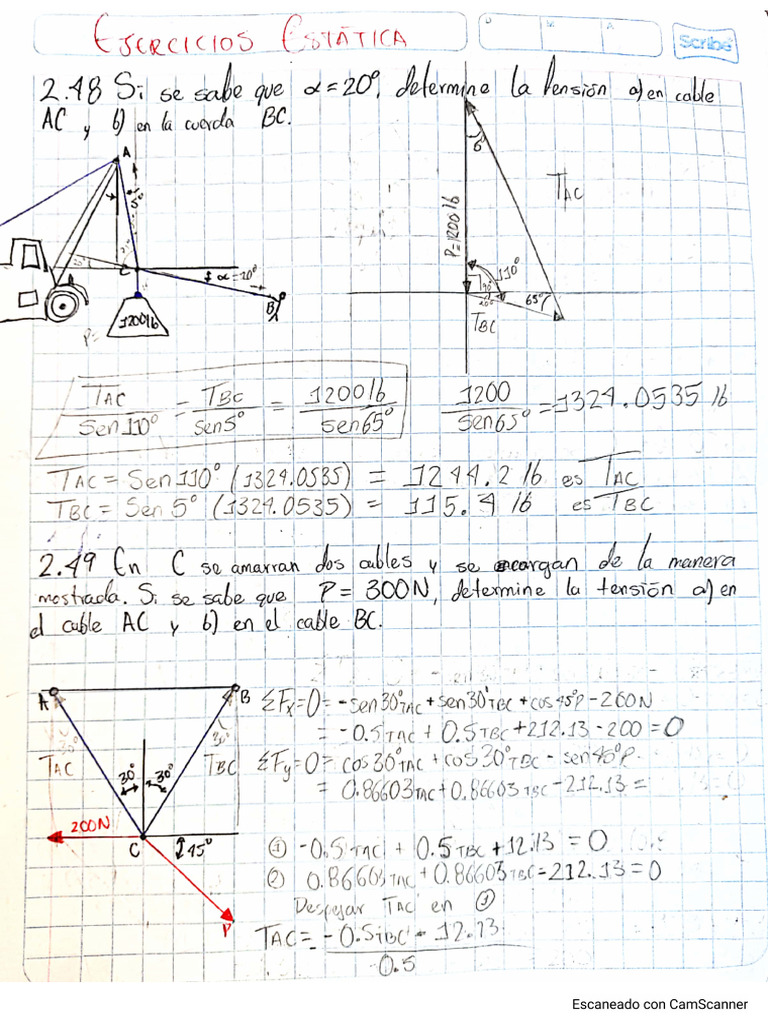 EJERCICIOS ESTÁTICA
D M A
Scribe
2.48 Si se sabe que α=20°, determine la tensión a) en cable
AC y b) en la cuerda BC.
A
5°
C
α=20°
B
1200 lb
P=
P=1200 lb
TAC
110°
90°
20°
65°
TBC
TAC/Sen110° = TBC/Sen5° = 1200 lb/sen65°
1200/sen65° = 1324.0535 lb
TAC = Sen110° (1324.0535) = 1244.2 lb es TAC
TBC = Sen5° (1324.0535) = 115.4 lb es TBC
2.49 En C se amarran dos cables y se encargan de la manera
mostrada. Si se sabe que P=300N, determine la tensión a) en
el cable AC y b) en el cable BC.
A
B
30°
30°
TAC
TBC
30°
30°
200N
C
45°
P
ΣFx=0= -sen30°TAC + sen30°TBC + cos45°P - 200N
= -0.5TAC + 0.5TBC + 212.13 - 200 = 0
ΣFy=0= cos30°TAC + cos30°TBC - sen45°P.
= 0.86603TAC + 0.86603TBC - 212.13 =
① -0.5TAC + 0.5TBC + 12.13 = 0
② 0.86603TAC + 0.86603TBC - 212.13 = 0
Despejar TAC en ①
TAC = -0.5TBC - 12.13
0.5
Escaneado con CamScanner